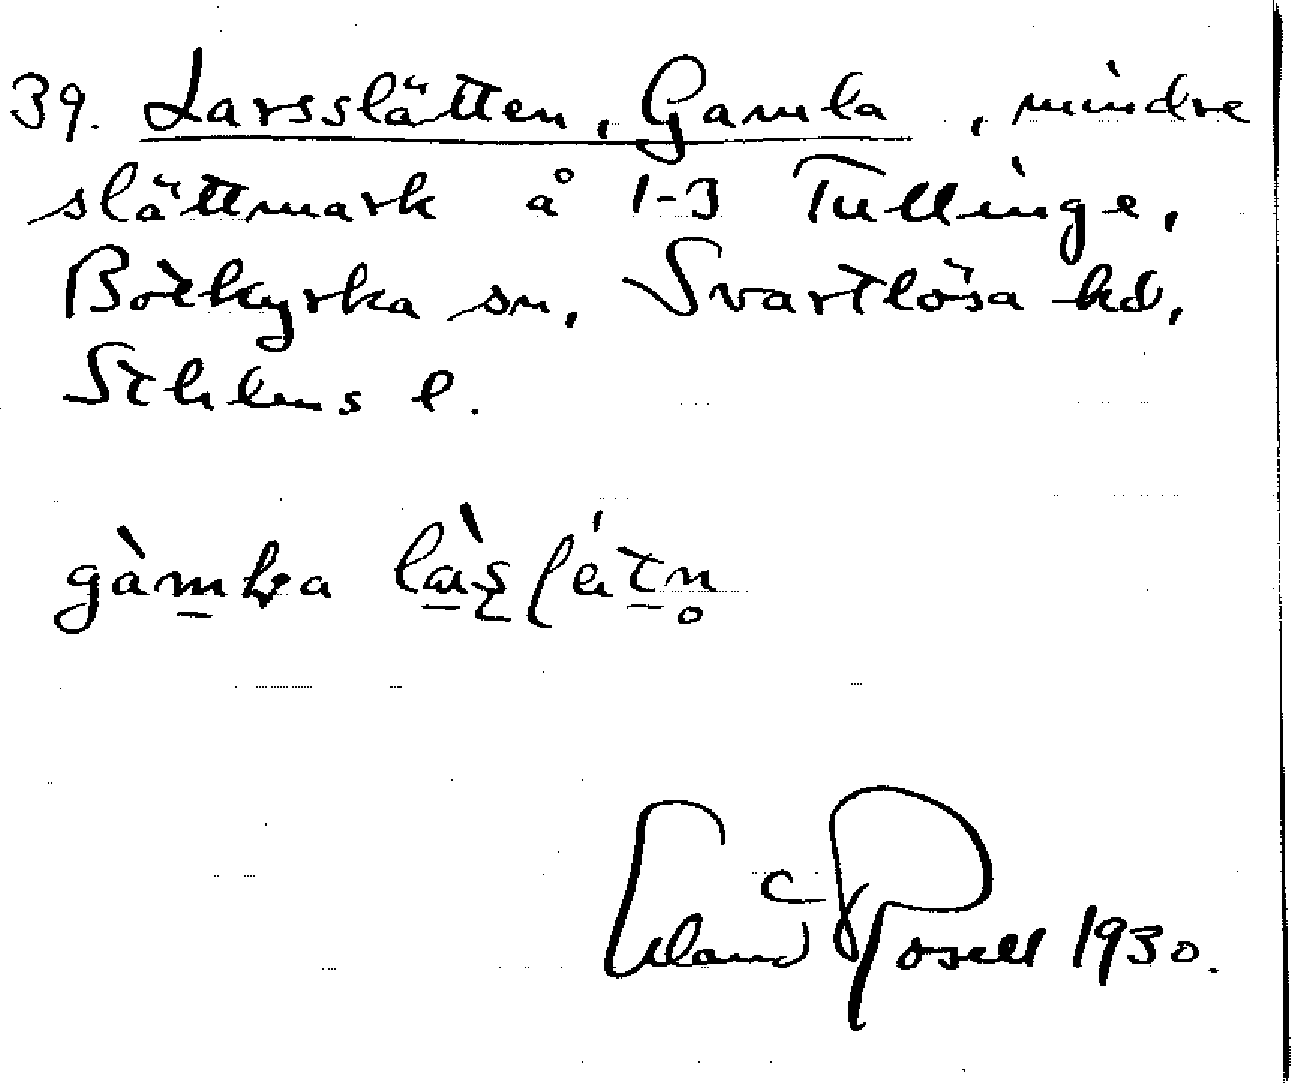 39. Larsslätten, Gamla, mindre
slättmark å 1-3 Tullinge,
Botkyrka sn, Svartlösa hd,
Sthlms l.
gàmla
Erland Rosell 1930.